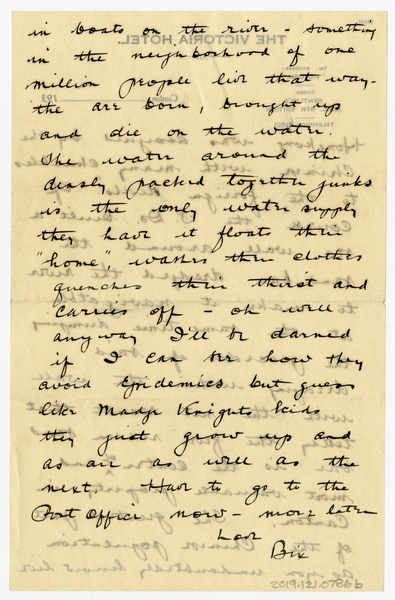 in boats on the river - something
in the neighborhood of one
million people live that way -
the are born, brought up
and die on the water.
The water around the
densly packed together junks
is the only water supply
they have it floats their
"home", washes their clothes
quenches their thirst and
carries off - oh well
anyway I'll be darned
if I can see how they
avoid Epidemics but guess
like Madge Knights kids
they just grow up and
as are as well as the
next. Have to go to the
Post Office now - more later
Love
Bix
2019.121.0786b